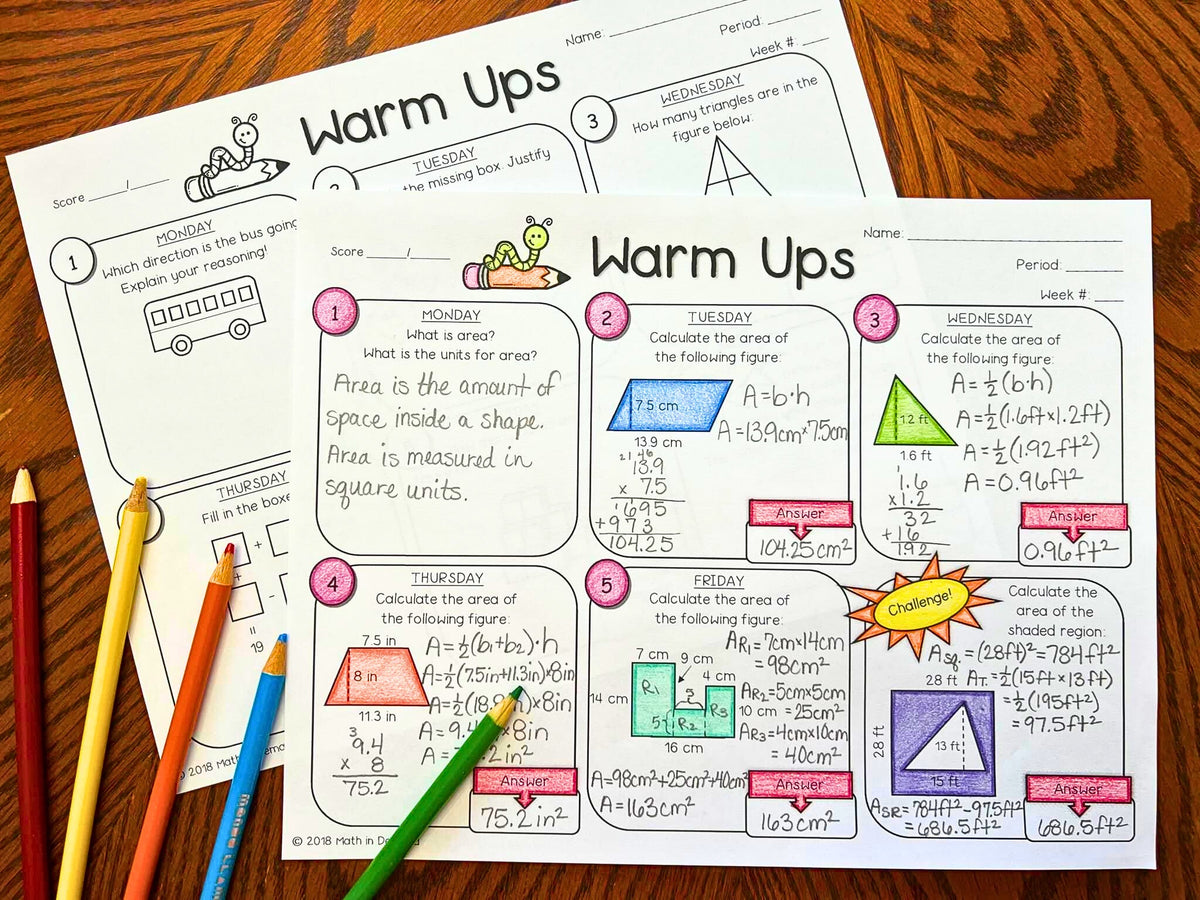 Name:
Period:
Week #:
Warm Ups
Score /
1
MONDAY
Which direction is the bus going
Explain your reasoning!
TUESDAY
the missing box. Justify
3
WEDNESDAY
How many triangles are in the
figure below:
THURSDAY
Fill in the boxe
+
+
-
=
19
© 2018 Math
Score /
Warm Ups
Name:
Period:
Week #:
1
MONDAY
What is area?
What is the units for area?
Area is the amount of
space inside a shape.
Area is measured in
square units.
2
TUESDAY
Calculate the area of
the following figure:
7.5 cm
13.9 cm
A=b·h
A=13.9cm×7.5cm
21 46
13.9
x 7.5
1695
+973
104.25
Answer
104.25cm²
3
WEDNESDAY
Calculate the area of
the following figure:
1.2 ft
1.6 ft
A=½(b·h)
A=½(1.6ft×1.2ft)
A=½(1.92ft²)
A=0.96ft²
1
1.6
x1.2
32
+16
192
Answer
0.96ft²
4
THURSDAY
Calculate the area of
the following figure:
7.5 in
8 in
11.3 in
A=½(b₁+b₂)·h
A=½(7.5in+11.3in)×8in
A=½(18.8 )×8in
A=9.4 ×8in
A= 2in²
3
9.4
x 8
75.2
Answer
75.2in²
5
FRIDAY
Calculate the area of
the following figure:
7 cm
9 cm
4 cm
14 cm
10 cm
16 cm
R₁
5
5
R₂
R₃
AR₁=7cm×14cm
=98cm²
AR₂=5cm×5cm
=25cm²
AR₃=4cm×10cm
=40cm²
A=98cm²+25cm²+40cm²
A=163cm²
Answer
163cm²
Challenge!
Calculate the
area of the
shaded region:
Asq.=(28ft)²=784ft²
28 ft
28 ft
13 ft
15 ft
AT=½(15ft×13ft)
=½(195ft²)
=97.5ft²
ASR=784ft²-97.5ft²
=686.5ft²
Answer
686.5ft²
© 2018 Math in De